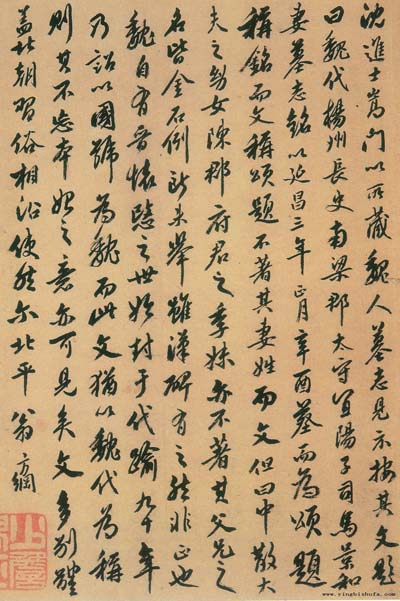 沈進士嵩門以所藏魏人墓志見示按其文題
曰魏代楊州長史南梁郡太守宜陽子司馬景和
妻墓志銘以延昌三年正月辛酉葬而為頌題
稱銘而文稱頌題不著其妻姓而文但曰中散大
夫之幼女陳郡府君之季妹亦不著其父兄之
名皆金石例所未舉雖漢碑有之然非正也
魏自有晉懷愍之世始封于代踰九十年
乃詔以國號為魏而此文猶以魏代為稱
則其不忘本始之意亦可見矣文多別體
蓋北朝習俗相沿使然尔北平翁方綱
www.yingbishufa.com